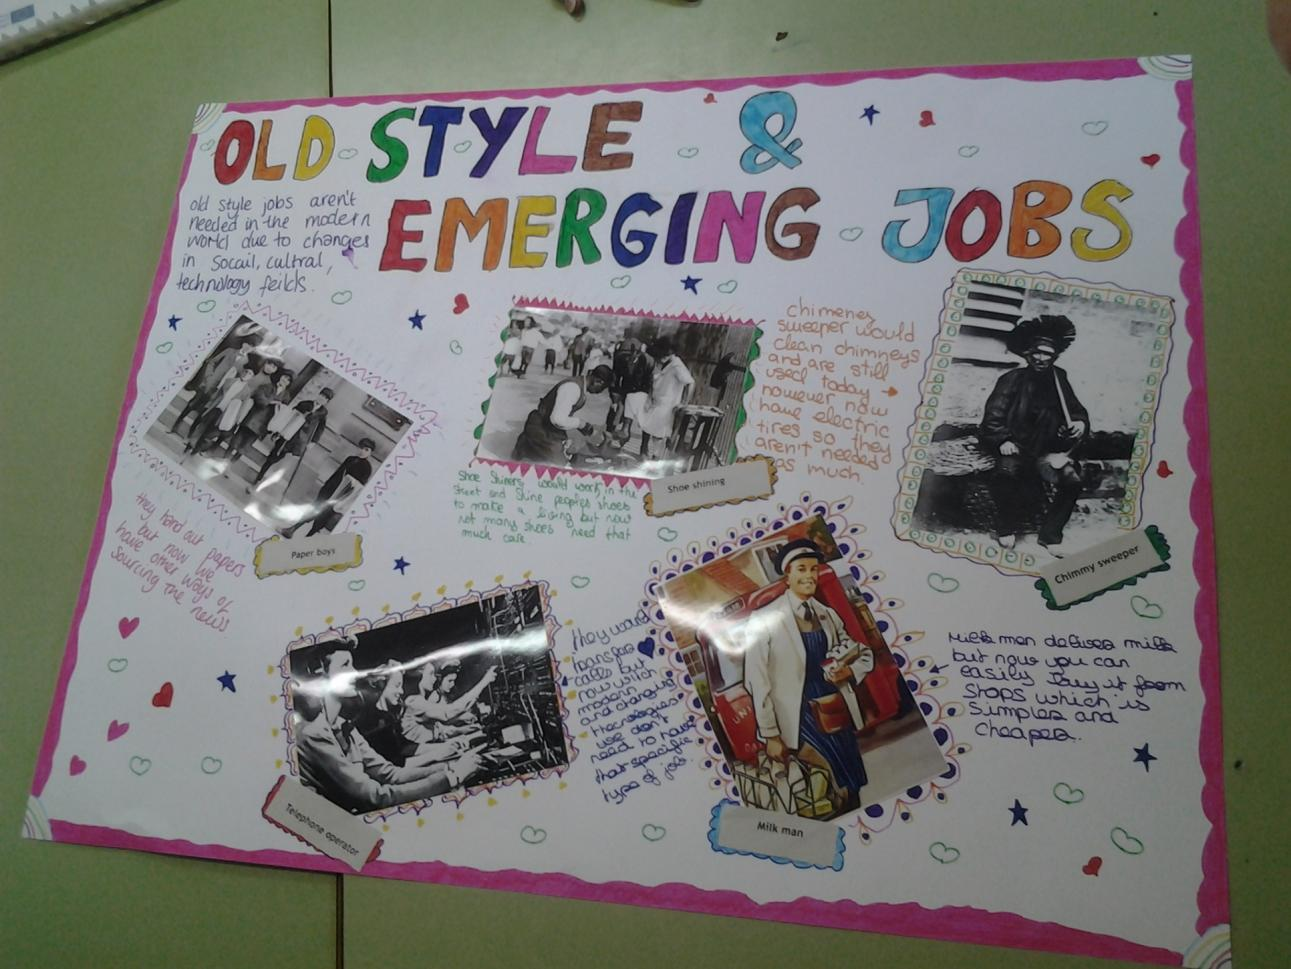 OLD STYLE &
EMERGING JOBS
old style jobs aren't
needed in the modern
world due to changes
in Socail, cultral,
technology feilds.
they hand out papers
but now we
have other ways of
sourcing the news.
Paper boys
Shoe Shiners would work in the
street and Shine peoples shoes
to make a living but now
not many shoes need that
much care
Shoe shining
chimeney
sweeper would
clean chimneys
and are still
used today
however now
have electric
fires so they
aren't needed
as much.
Chimmy sweeper
Telephone operator
they would
transfer
calls but
now with
modern
and changing
thecnologies
we don't
need to have
that specific
type of job.
Milk man
Milk men deliver milk
but now you can
easily buy it from
shops which is
simpler and
cheaper.